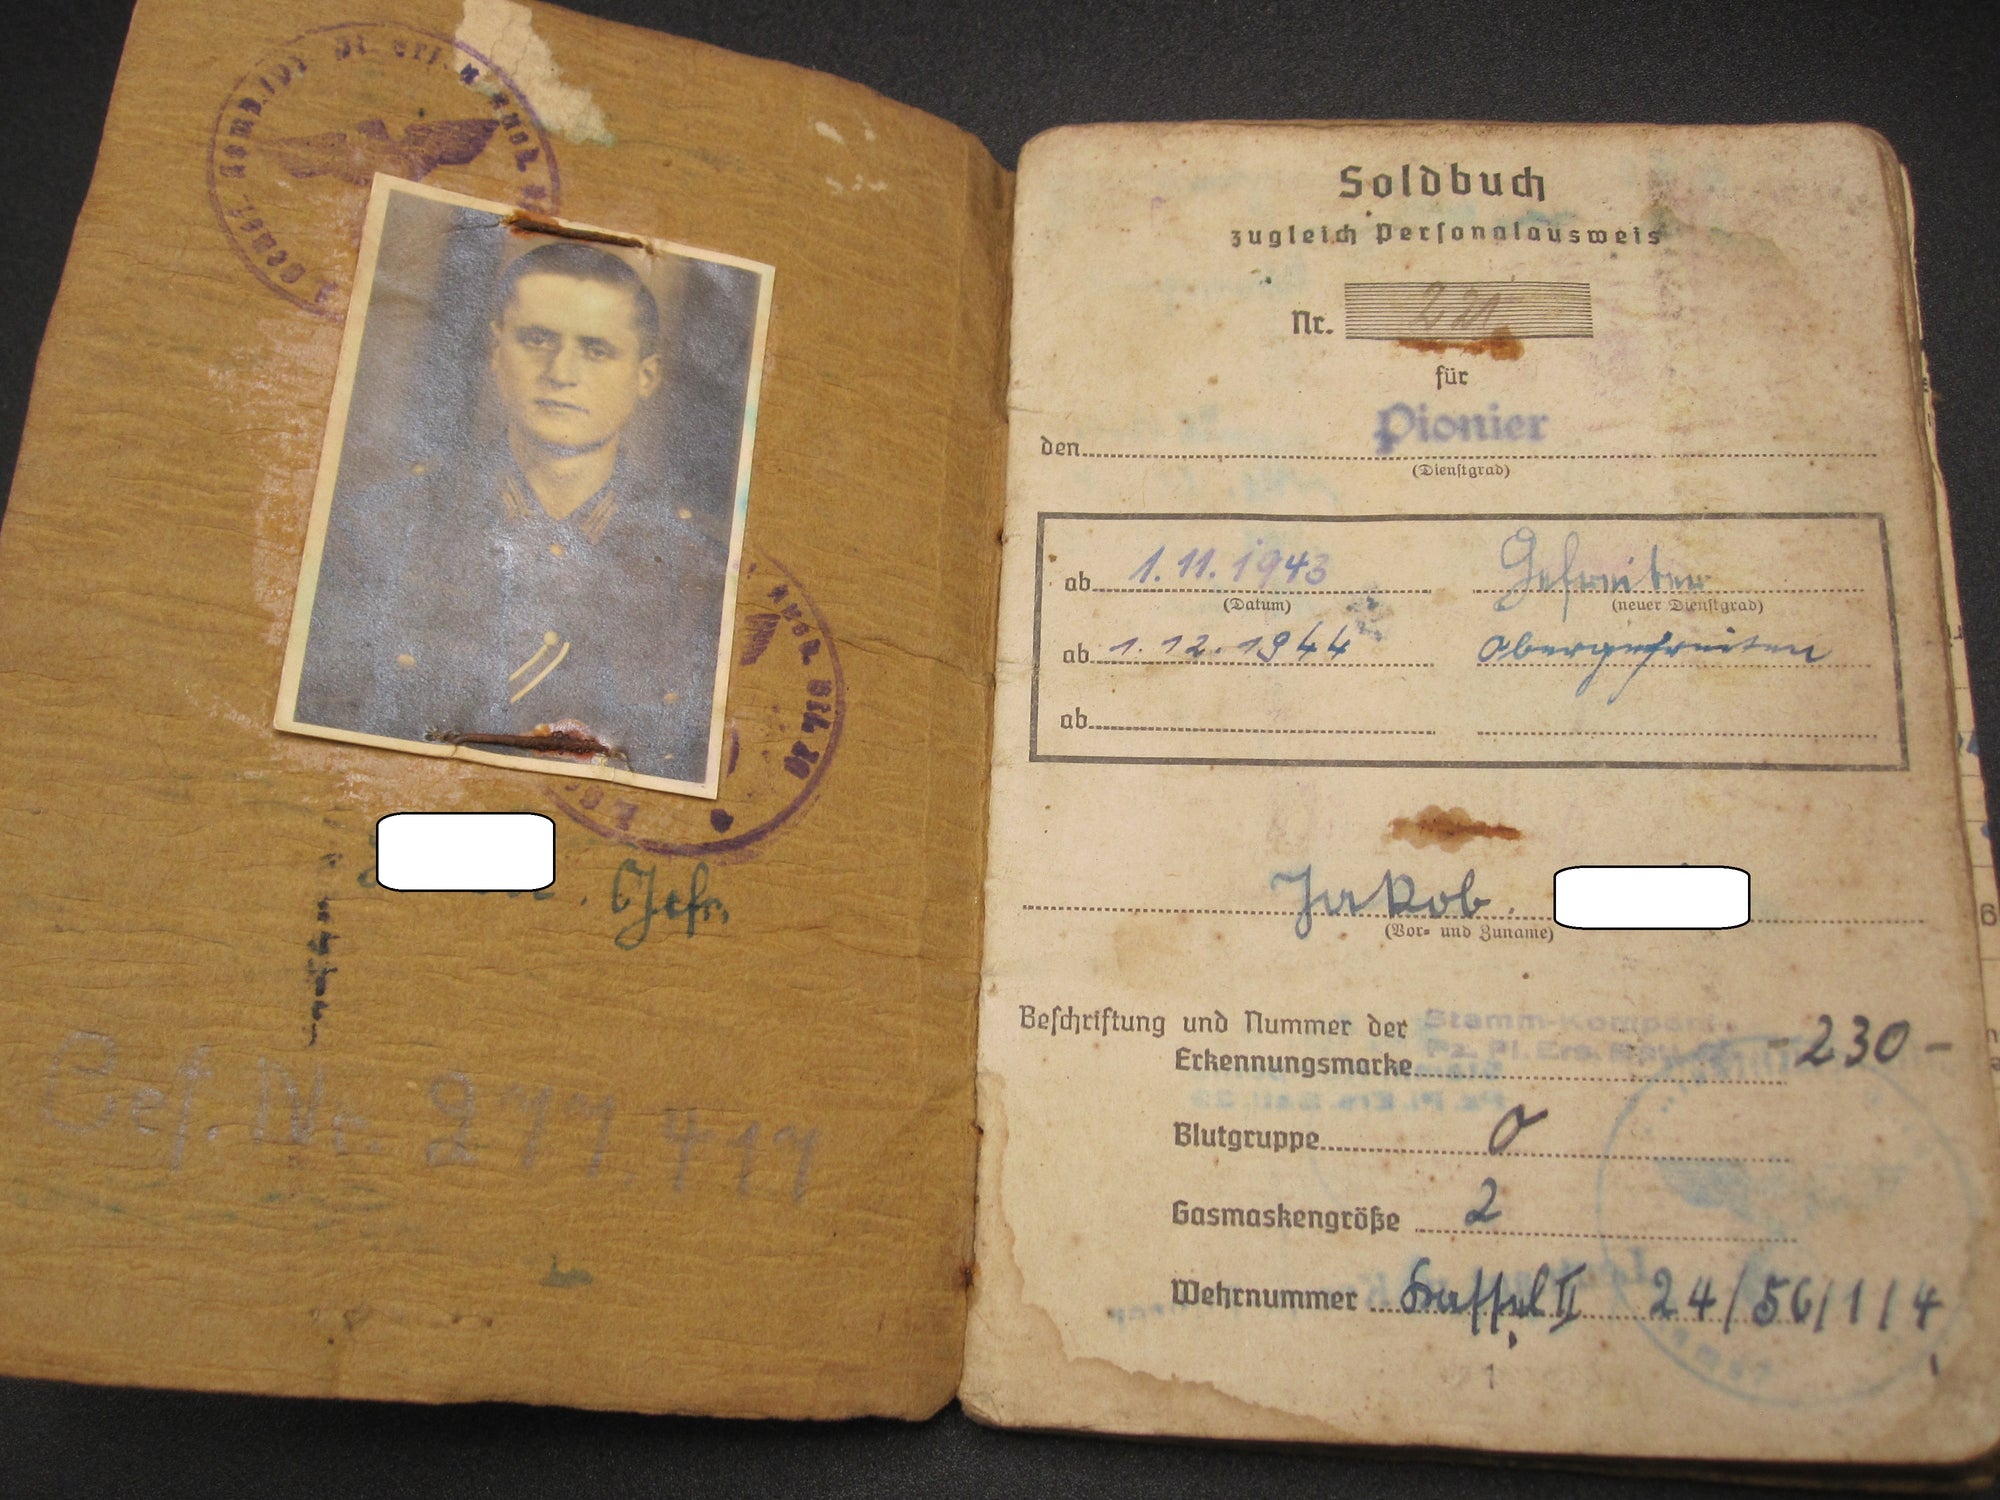 Gefr.
Gef. Nr. 277.417
Soldbuch
zugleich Personalausweis
Nr. 221
für
den Pionier
(Dienstgrad)
ab 1.11.1943 Gefreiter
(Datum) (neuer Dienstgrad)
ab 1.12.1944 Obergefreiten
ab
Jakob.
(Vor- und Zuname)
Beschriftung und Nummer der Stamm-Komp.
Erkennungsmarke Pz. Pi. Ers. Batl. -230-
Blutgruppe O
Gasmaskengröße 2
Wehrnummer Kassel II 24/56/1/4
1